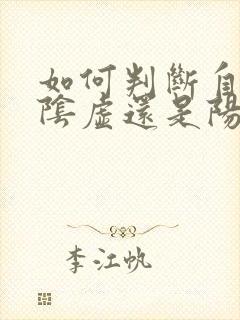 如何判斷自
陰虛還是陽
李江帆